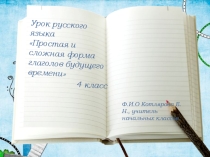 Урок русского
языка
«Простая и
сложная форма
глаголов будущего
времени»
4 класс
Ф.И.О Котлярова В.
И., учитель
начальных классов